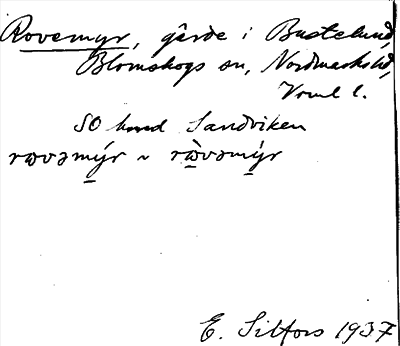 Rovemyr, gärde i Bustelund,
Blomskogs sn, Nordmarks hd,
Vrml l.
SO hmd Sandviken
rωvəmýr ~ rὼvəmýr
E. Silfors 1937